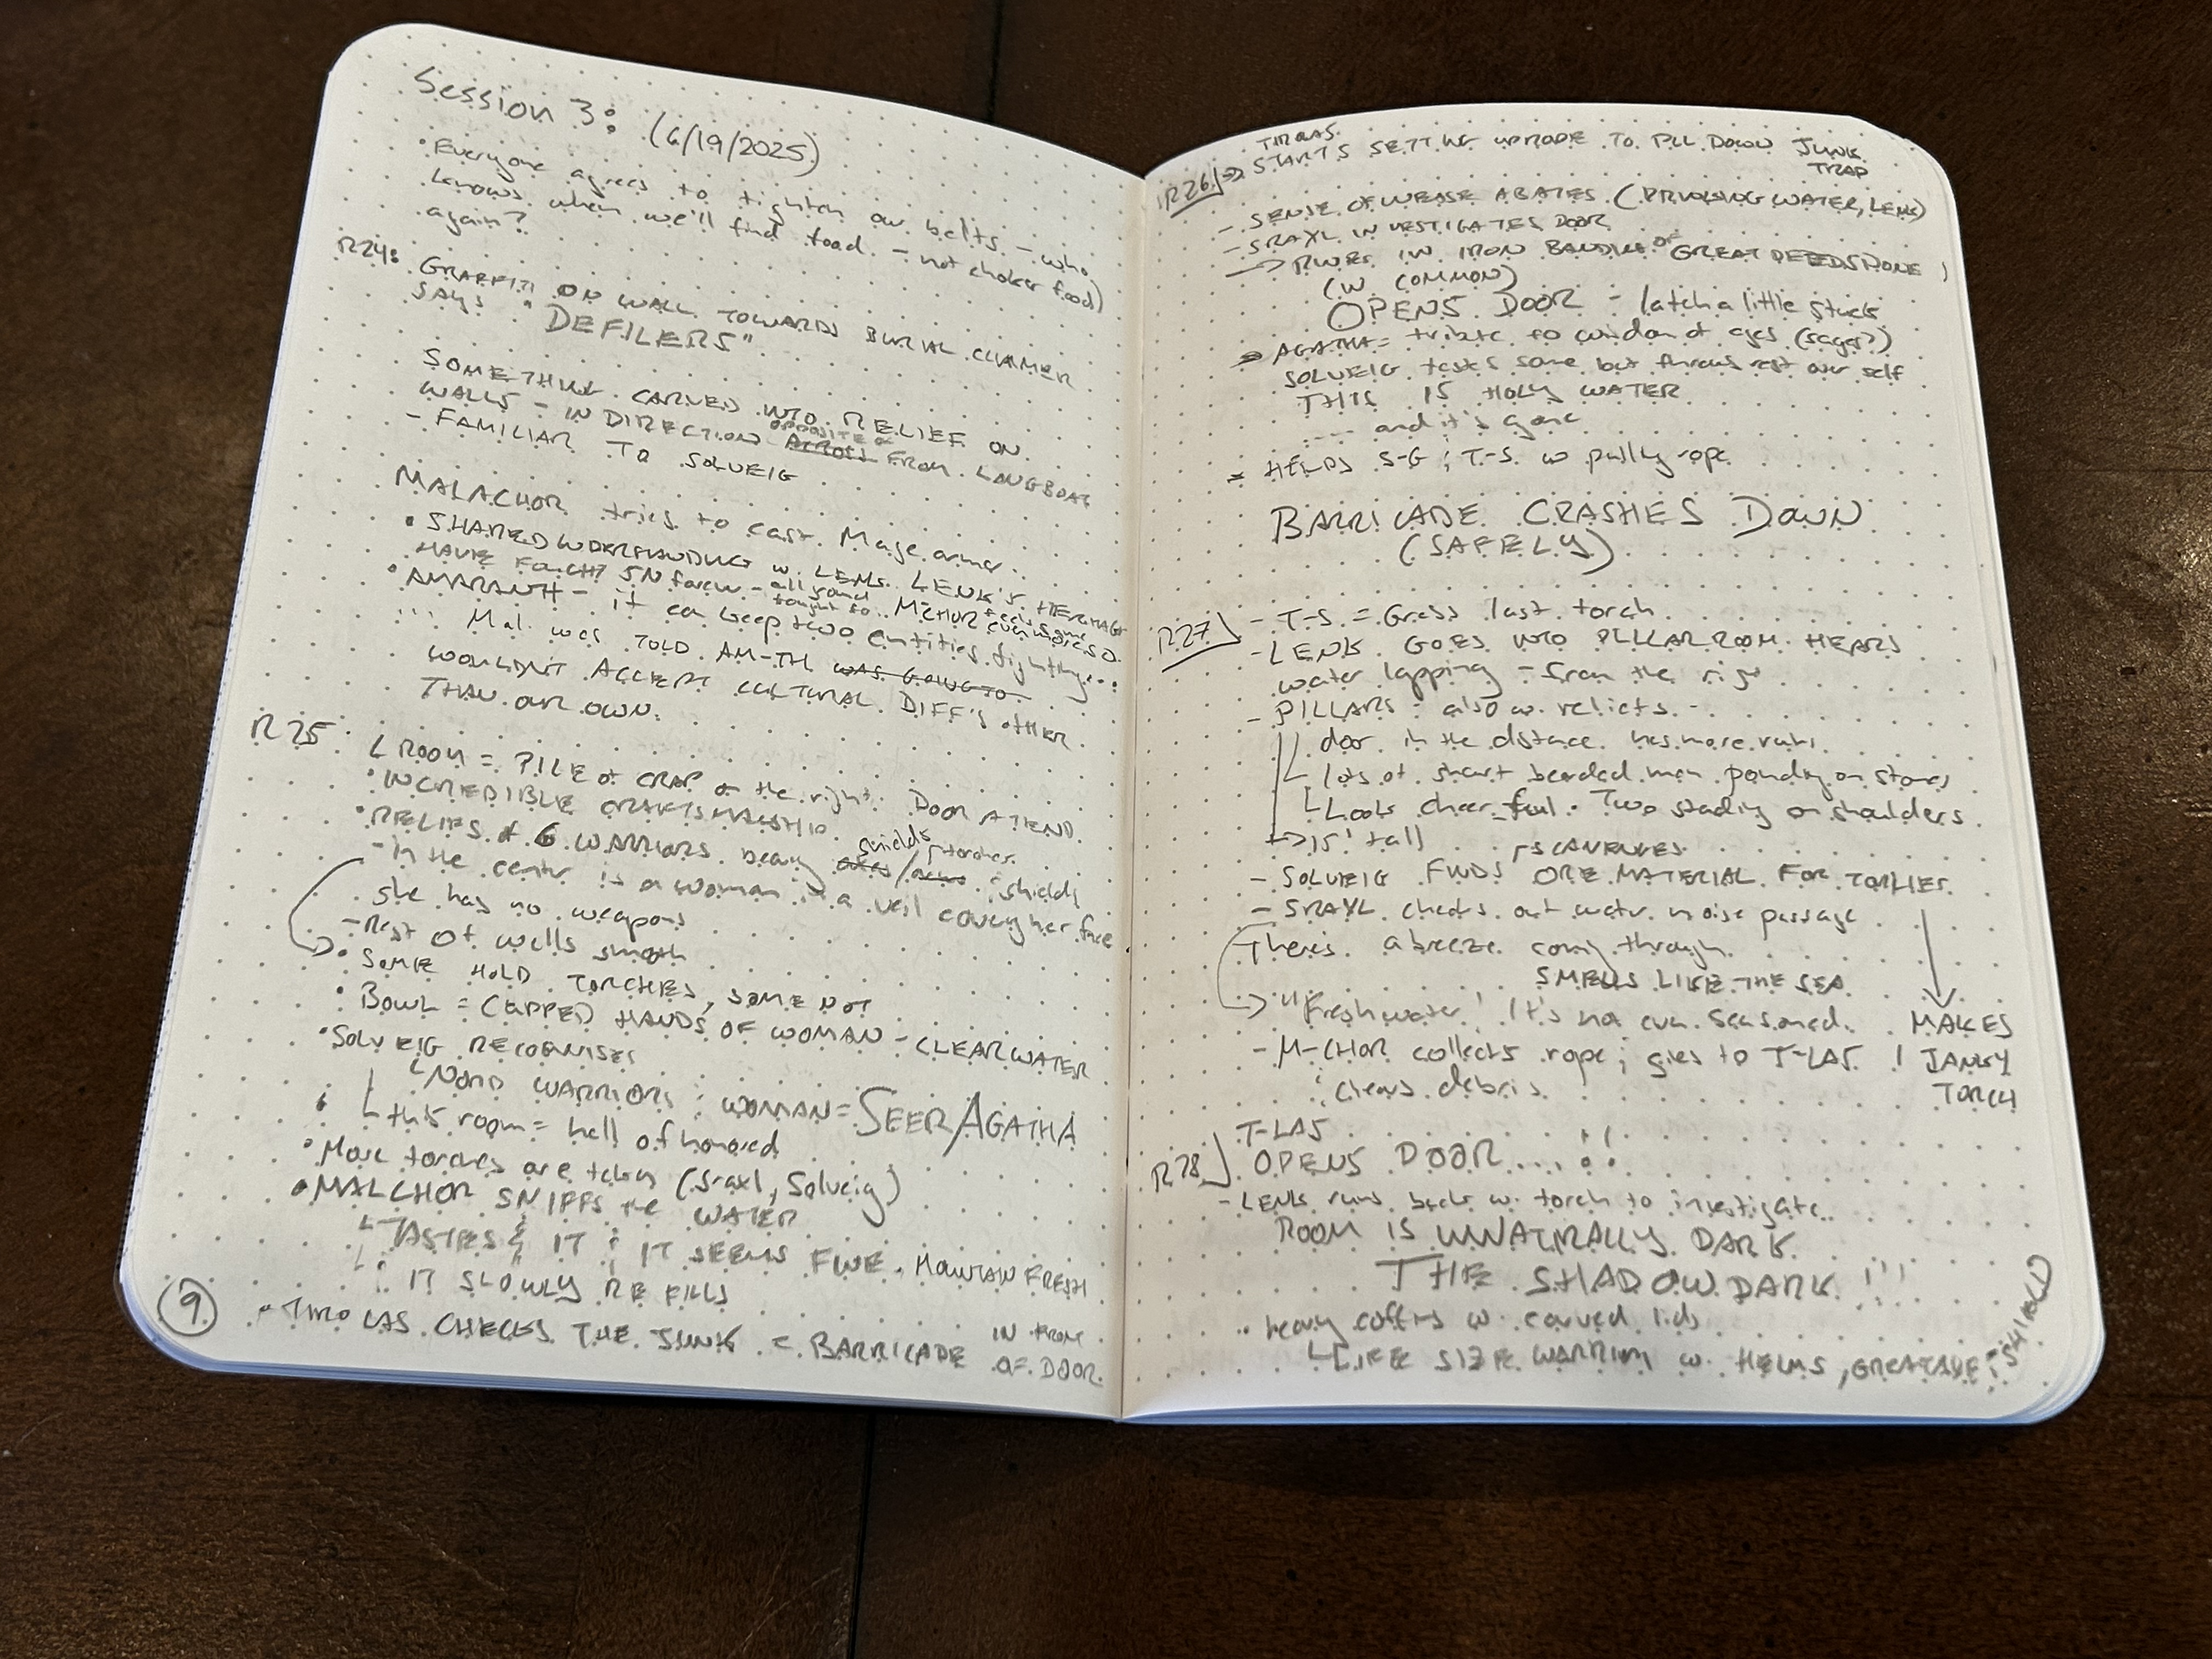 Session 3: (6/19/2025)
• Everyone agrees to tighten our belts - who
knows when we'll find food. - not choker food)
again?
R24: GRAFFITI ON WALL TOWARDS BURIAL CHAMBER
SAYS "DEFILERS"
SOMETHING CARVED INTO RELIEF ON
WALLS - IN DIRECTION OPPOSITE FROM LONGBOAT
- FAMILIAR TO SOLVEIG
MALACHOR tries to cast Mage armor.
• SHARED UNDERSTANDING w. LENK. LENK'S HERITAGE
HAVE
• AMARANTH - it can keep two entities fighting...
... Mal. was TOLD AM-TH was GOING TO
WOULDN'T ACCEPT CULTURAL DIFF'S OTHER
THAN OUR OWN.
R25: L ROOM = PILE of CRAP on the right. DOOR AT END.
• INCREDIBLE CRAFTSMANSHIP.
• RELIEFS of 6 WARRIORS bearing shields
- In the center is a woman in a veil covering her face
she has no weapons
- Rest of walls smooth
• SOME HOLD TORCHES, SOME NOT
• BOWL = CUPPED HANDS OF WOMAN - CLEAR WATER
• SOLVEIG RECOGNISES
NORD WARRIORS; WOMAN = SEER AGATHA
this room = hall of honored
• More torches are taken (Sraxl, Solveig)
• MALCHOR SNIFFS the WATER
TASTES IT ; IT SEEMS FINE. MOUNTAIN FRESH
: IT SLOWLY REFILLS
9
• THROLAS CHECKS THE JUNK = BARRICADE IN FRONT
OF DOOR.
R26
STARTS SETTING UP ROPE TO PULL DOWN JUNK
TRAP
- SENSE OF UNEASE ABATES. (DRINKING WATER, LENK)
- SRAXL INVESTIGATES DOOR
→ RUNES IN IRON BANDING OF GREAT DEEDS DONE
(IN COMMON)
OPENS DOOR - latch a little stuck
AGATHA = tribute to wisdom of ages (sages?)
SOLVEIG tastes some but throws rest over self
THIS IS HOLY WATER
.... and it's gone
HELPS S-G ; T-S w pulling rope
BARRICADE CRASHES DOWN
(SAFELY)
R27
- T-S = Gress last torch
- LENK GOES INTO PILLAR ROOM. HEARS
water lapping - from the right
- PILLARS: also w. reliefs. -
door in the distance has more runes.
lots of short bearded men pounding on stones
Looks cheerful. Two standing on shoulders.
→ 15' tall
SCAVENGES
- SOLVEIG FINDS MORE MATERIAL FOR TORCHES.
- SRAXL checks out water noise passage
There's a breeze coming through.
SMELLS LIKE THE SEA
"Freshwater! It's not even seasoned.
MAKES
JANKY
TORCH
- M-CHOR collects rope; gives to T-LAS !
; clears debris.
T-LAS
R28 OPENS DOOR....!!
- LENK runs back w. torch to investigate..
ROOM IS UNNATURALLY DARK.
THE SHADOW DARK!!!
• heavy coffins w. carved lids
LIFE SIZE WARRIORS w. HELMS, GREATAXE ; SHIELD